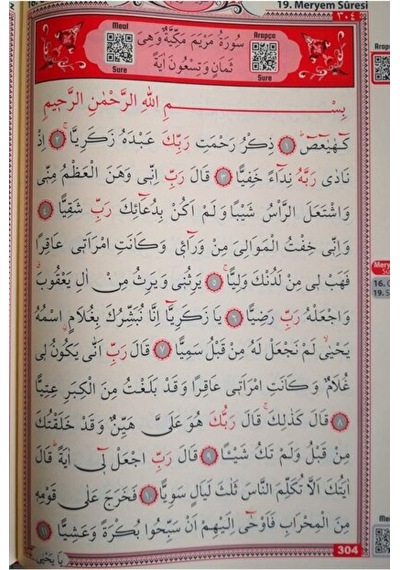 19. Meryem Sûresi
٣٠٤
Meal
Sure
سُورَةُ مَرْيَمَ مَكِّيَّةٌ وَهِىَ
ثَمَانٍ وَتِسْعُونَ اٰيَةً
Arapça
Sure
بِسْــــمِ اللّٰهِ الرَّحْمٰنِ الرَّحٖيمِ
كٓـهٰيٰعٓصٓ ١ ذِكْرُ رَحْمَتِ رَبِّكَ عَبْدَهُ زَكَرِيَّا ٢ اِذْ
نَادٰى رَبَّهُ نِدَٓاءً خَفِيًّا ٣ قَالَ رَبِّ اِنّٖى وَهَنَ الْعَظْمُ مِنّٖى
وَاشْتَعَلَ الرَّاْسُ شَيْبًا وَلَمْ اَكُنْ بِدُعَٓائِكَ رَبِّ شَقِيًّا ٤
وَاِنّٖى خِفْتُ الْمَوَالِىَ مِنْ وَرَٓائٖى وَكَانَتِ امْرَاَتٖى عَاقِرًا
فَهَبْ لٖى مِنْ لَدُنْكَ وَلِيًّا ٥ يَرِثُنٖى وَيَرِثُ مِنْ اٰلِ يَعْقُوبَ
وَاجْعَلْهُ رَبِّ رَضِيًّا ٦ يَا زَكَرِيَّٓا اِنَّا نُبَشِّرُكَ بِغُلَامٍ اسْمُهُ
يَحْيٰى لَمْ نَجْعَلْ لَهُ مِنْ قَبْلُ سَمِيًّا ٧ قَالَ رَبِّ اَنّٰى يَكُونُ لٖى
غُلَامٌ وَكَانَتِ امْرَاَتٖى عَاقِرًا وَقَدْ بَلَغْتُ مِنَ الْكِبَرِ عِتِيًّا
٨ قَالَ كَذٰلِكَ قَالَ رَبُّكَ هُوَ عَلَىَّ هَيِّنٌ وَقَدْ خَلَقْتُكَ
مِنْ قَبْلُ وَلَمْ تَكُ شَيْـًٔا ٩ قَالَ رَبِّ اجْعَلْ لٖٓى اٰيَةً قَالَ
اٰيَتُكَ اَلَّا تُكَلِّمَ النَّاسَ ثَلٰثَ لَيَالٍ سَوِيًّا ١٠ فَخَرَجَ عَلٰى قَوْمِهٖ
مِنَ الْمِحْرَابِ فَاَوْحٰٓى اِلَيْهِمْ اَنْ سَبِّحُوا بُكْرَةً وَعَشِيًّا ١١
304
يَا يَحْيٰى